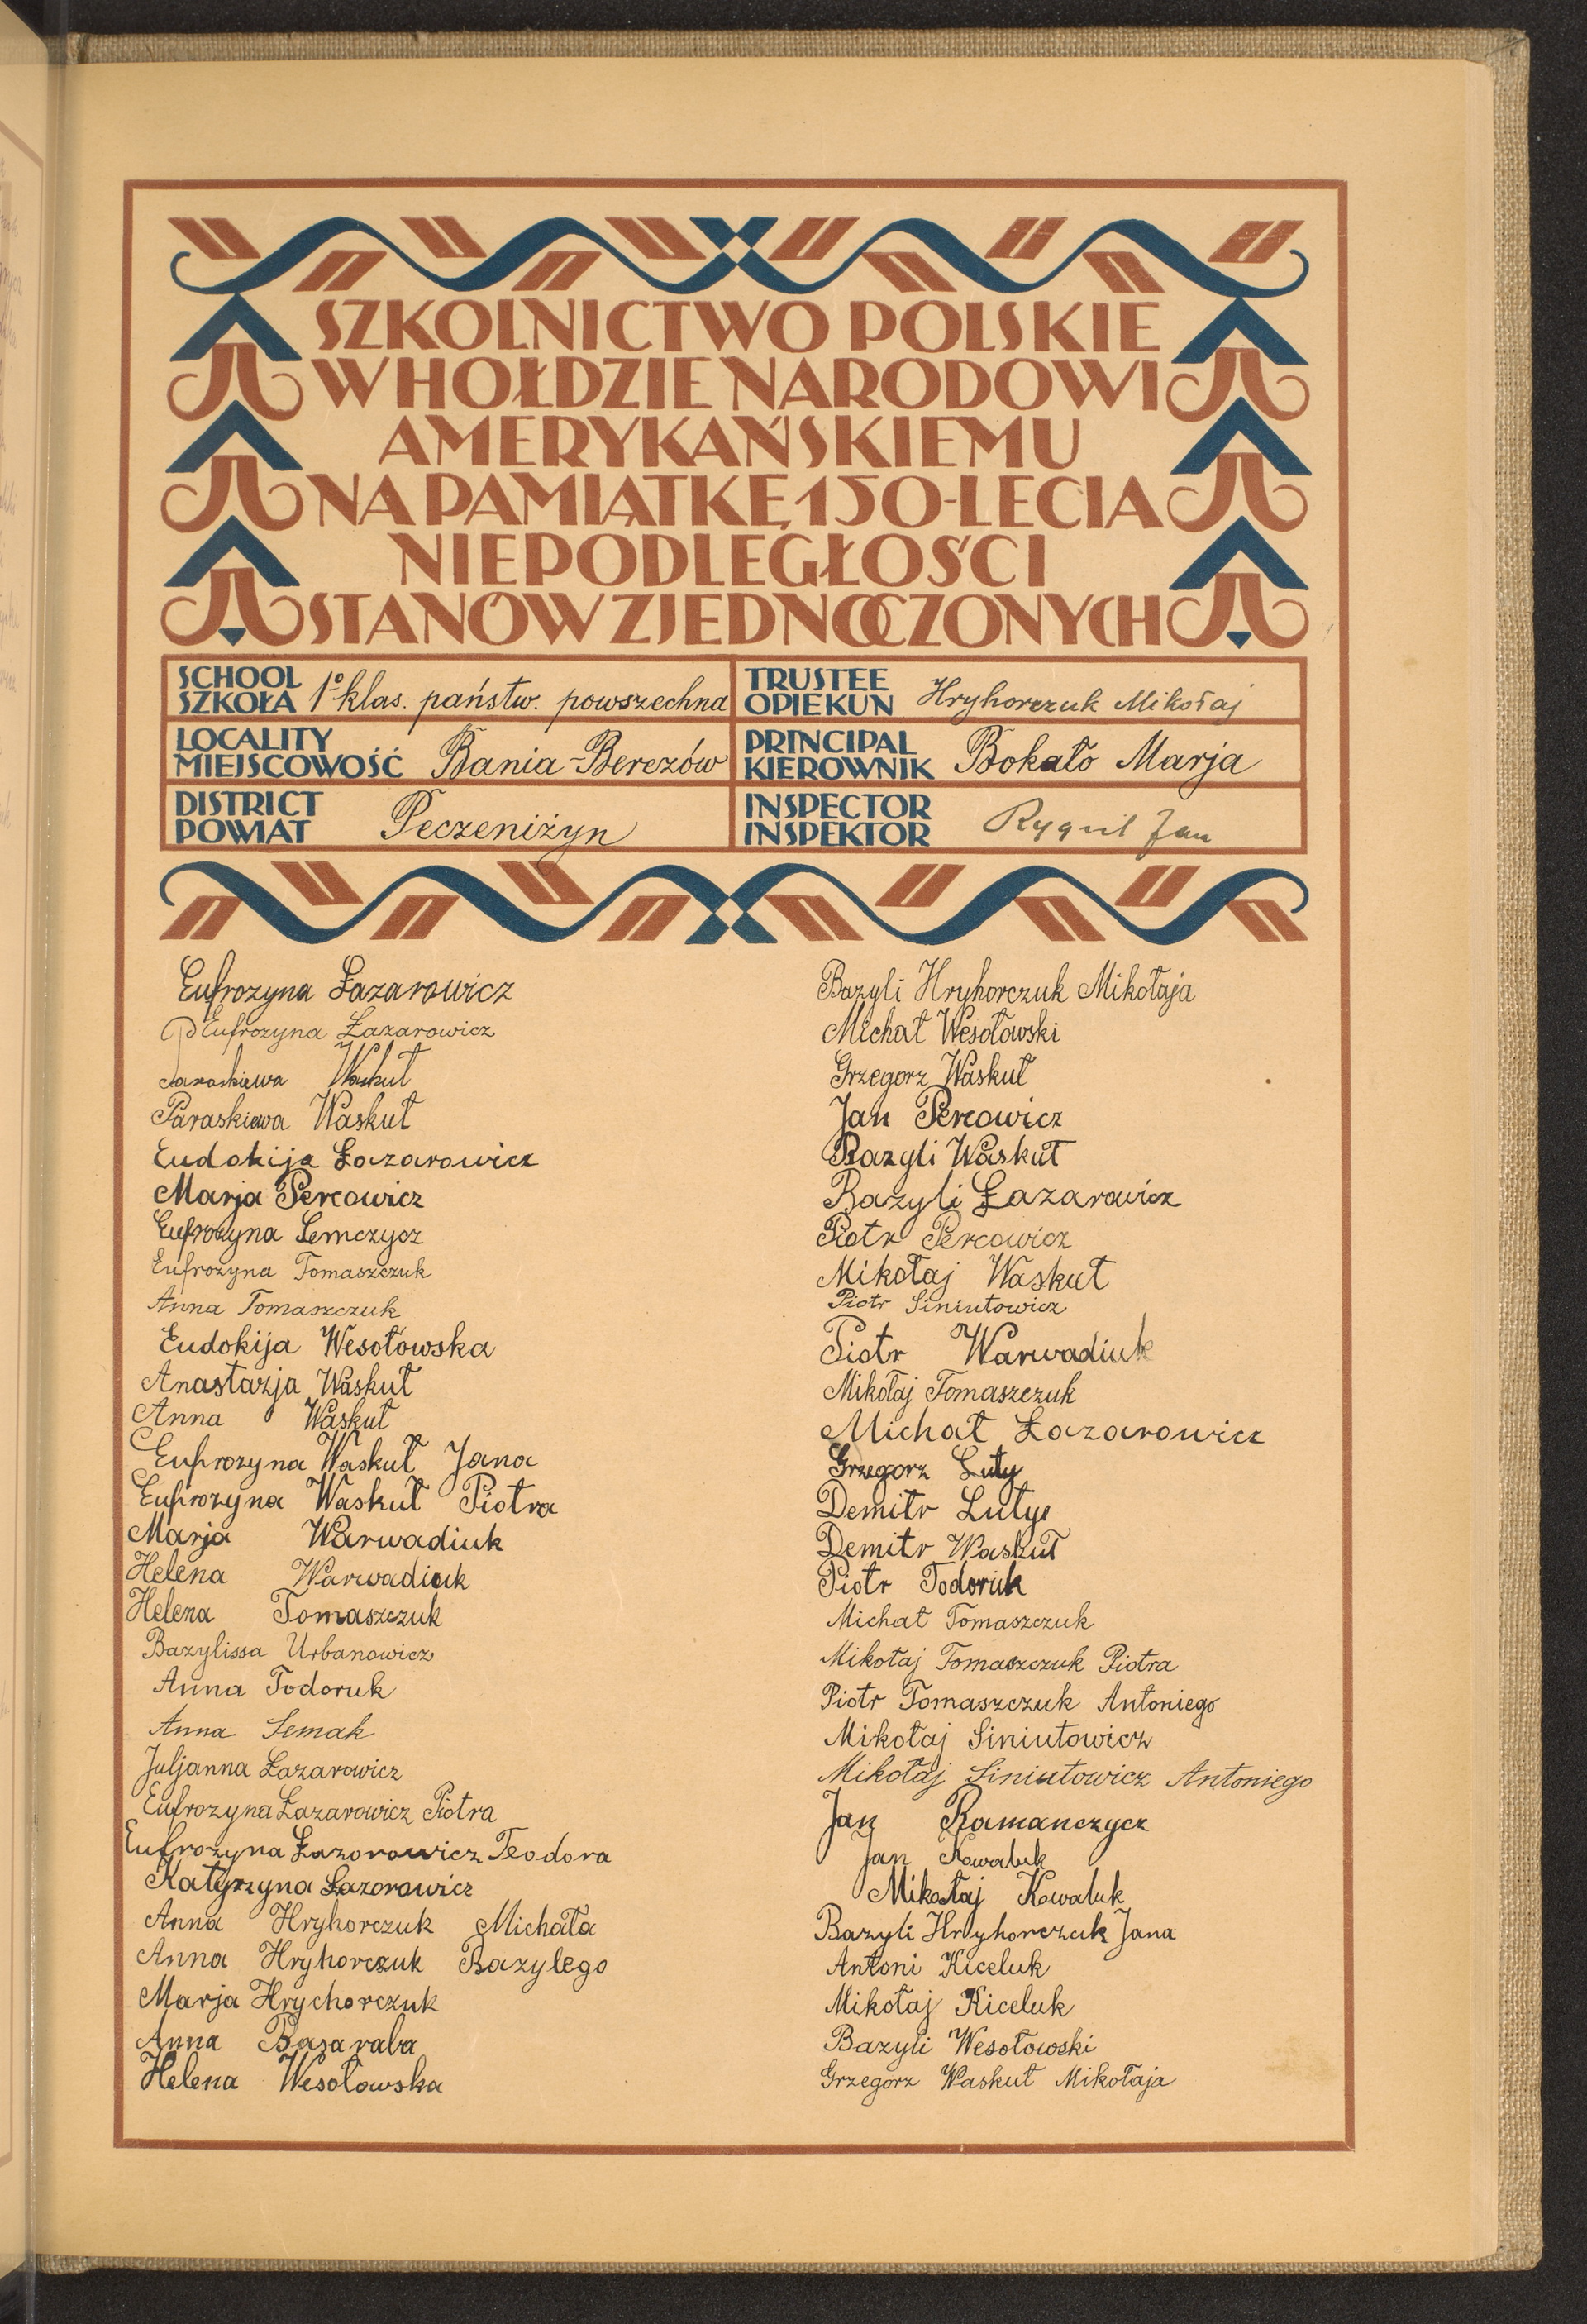 SZKOLNICTWO POLSKIE
W HOŁDZIE NARODOWI
AMERYKAŃSKIEMU
NA PAMIĄTKĘ 150-LECIA
NIEPODLEGŁOŚCI
STANÓW ZJEDNOCZONYCH
SCHOOL
SZKOŁA 1º klas. państw. powszechna
TRUSTEE
OPIEKUN Hryhorczuk Mikołaj
LOCALITY
MIEJSCOWOŚĆ Bania-Berezów
PRINCIPAL
KIEROWNIK Bokało Marja
DISTRICT
POWIAT Peczeniżyn
INSPECTOR
INSPEKTOR Jan
Eufrozyna Łazarowicz
Eufrozyna Łazarowicz
Paraskiewa Waskuł
Paraskiewa Waskuł
Eudokija Łazarowicz
Marja Percowicz
Eufrozyna Semczycz
Eufrozyna Tomaszczuk
Anna Tomaszczuk
Eudokija Wesołowska
Anastazja Waskuł
Anna Waskuł
Eufrozyna Waskuł Jana
Eufrozyna Waskuł Piotra
Marja Warwadiuk
Helena Warwadiuk
Helena Tomaszczuk
Bazylissa Urbanowicz
Anna Todoruk
Anna Semak
Juljanna Łazarowicz
Eufrozyna Łazarowicz Piotra
Eufrozyna Łazorowicz Teodora
Katyrzyna Łazorowicz
Anna Hryhorczuk Michała
Anna Hryhorczuk Bazylego
Marja Hrychorczuk
Anna Basaraba
Helena Wesołowska
Bazyli Hryhorczuk Mikołaja
Michał Wesołowski
Grzegorz Waskuł
Jan Percowicz
Bazyli Waskuł
Bazyli Łazarowicz
Piotr Percowicz
Mikołaj Waskuł
Piotr Siniutowicz
Piotr Warwadiuk
Mikołaj Tomaszczuk
Michał Łazarowicz
Grzegorz Luty
Demitr Lutyj
Demitr Waskuł
Piotr Todoruk
Michał Tomaszczuk
Mikołaj Tomaszczuk Piotra
Piotr Tomaszczuk Antoniego
Mikołaj Siniutowicz
Mikołaj Siniutowicz Antoniego
Jan Romanczycz
Jan Kowaluk
Mikołaj Kowaluk
Bazyli Hryhorczuk Jana
Antoni Kiceluk
Mikołaj Kiceluk
Bazyli Wesołowski
Grzegorz Waskuł Mikołaja